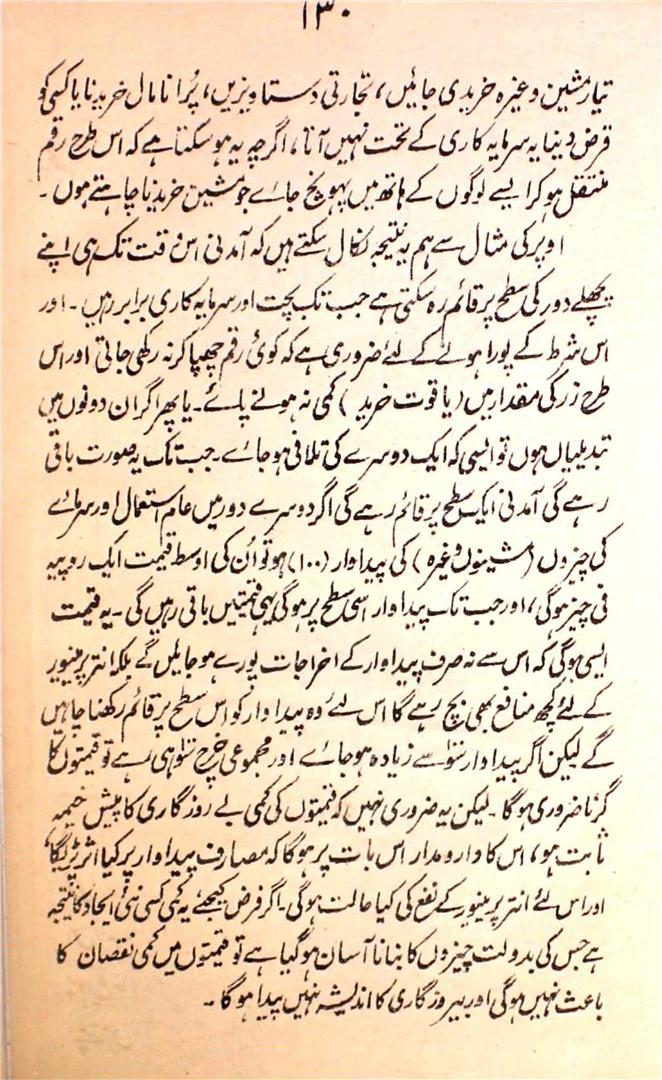 ۱۳۰
تیار مشین وغیرہ خریدی جائیں، تجارتی دستاویزیں، پُرانا مال خریدنا یا کسی کو
قرض دینا یہ سرمایہ کاری کے تحت نہیں آتا، اگرچہ یہ ہو سکتا ہے کہ اس طرح رقم
منتقل ہو کر ایسے لوگوں کے ہاتھ میں پہونچ جاے جو مشین خریدنا چاہتے ہوں۔
اوپر کی مثال سے ہم یہ نتیجہ نکال سکتے ہیں کہ آمدنی اس وقت تک ہی اپنے
پچھلے دور کی سطح پر قائم رہ سکتی ہے جب تک بچت اور سرمایہ کاری برابر رہیں۔ اور
اس شرط کے پورا ہونے کے لئے ضروری ہے کہ کوئی رقم چھپا کر نہ رکھی جاتی اور اس
طرح زر کی مقدار میں (یا قوت خرید) کمی نہ ہونے پائے۔ یا پھر اگر ان دونوں میں
تبدیلیاں ہوں تو ایسی کہ ایک دوسرے کی تلافی ہو جاے۔ جب تک یہ صورت باقی
رہے گی آمدنی ایک سطح پر قائم رہے گی اگر دوسرے دور میں عام استعمال اور سرماے
کی چیزوں (مشینوں وغیرہ) کی پیداوار (۱۰۰) ہو تو اُن کی اوسط قیمت ایک روپیہ
فی چیز ہوگی، اور جب تک پیداوار اسی سطح پر ہوگی یہی قیمتیں باقی رہیں گی۔ یہ قیمت
ایسی ہوگی کہ اس سے نہ صرف پیداوار کے اخراجات پورے ہو جایں گے بلکہ انترپرینیور
کے لئے کچھ منافع بھی بچ رہے گا اس لئے وہ پیداوار کو اس سطح پر قائم رکھنا چاہیں
گے لیکن اگر پیداوار سَو سے زیادہ ہو جاے اور مجموعی خرچ سَو ہی رہے تو قیمتوں کا
گرنا ضروری ہوگا۔ لیکن یہ ضروری نہیں کہ قیمتوں کی کمی بے روزگاری کا پیش خیمہ
ثابت ہو، اس کا دارومدار اس بات پر ہوگا کہ مصارف پیداوار پر کیا اثر پڑیگا،
اور اس لئے انترپرینیور کے نفع کی کیا حالت ہوگی۔ اگر فرض کیجئے یہ کمی کسی نئی ایجاد کا نتیجہ
ہے جس کی بدولت چیزوں کا بنانا آسان ہو گیا ہے تو قیمتوں میں کمی نقصان کا
باعث نہیں ہوگی اور بیروزگاری کا اندیشہ نہیں پیدا ہوگا۔